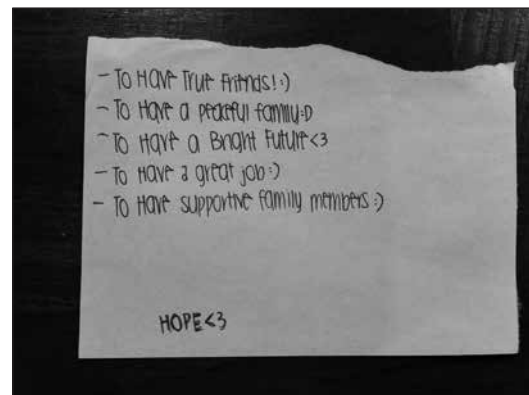 - To Have True Friends! :)
- To Have a peaceful family :D
- To Have a Bright Future <3
- To Have a great job :)
- To Have supportive family members :)
HOPE <3